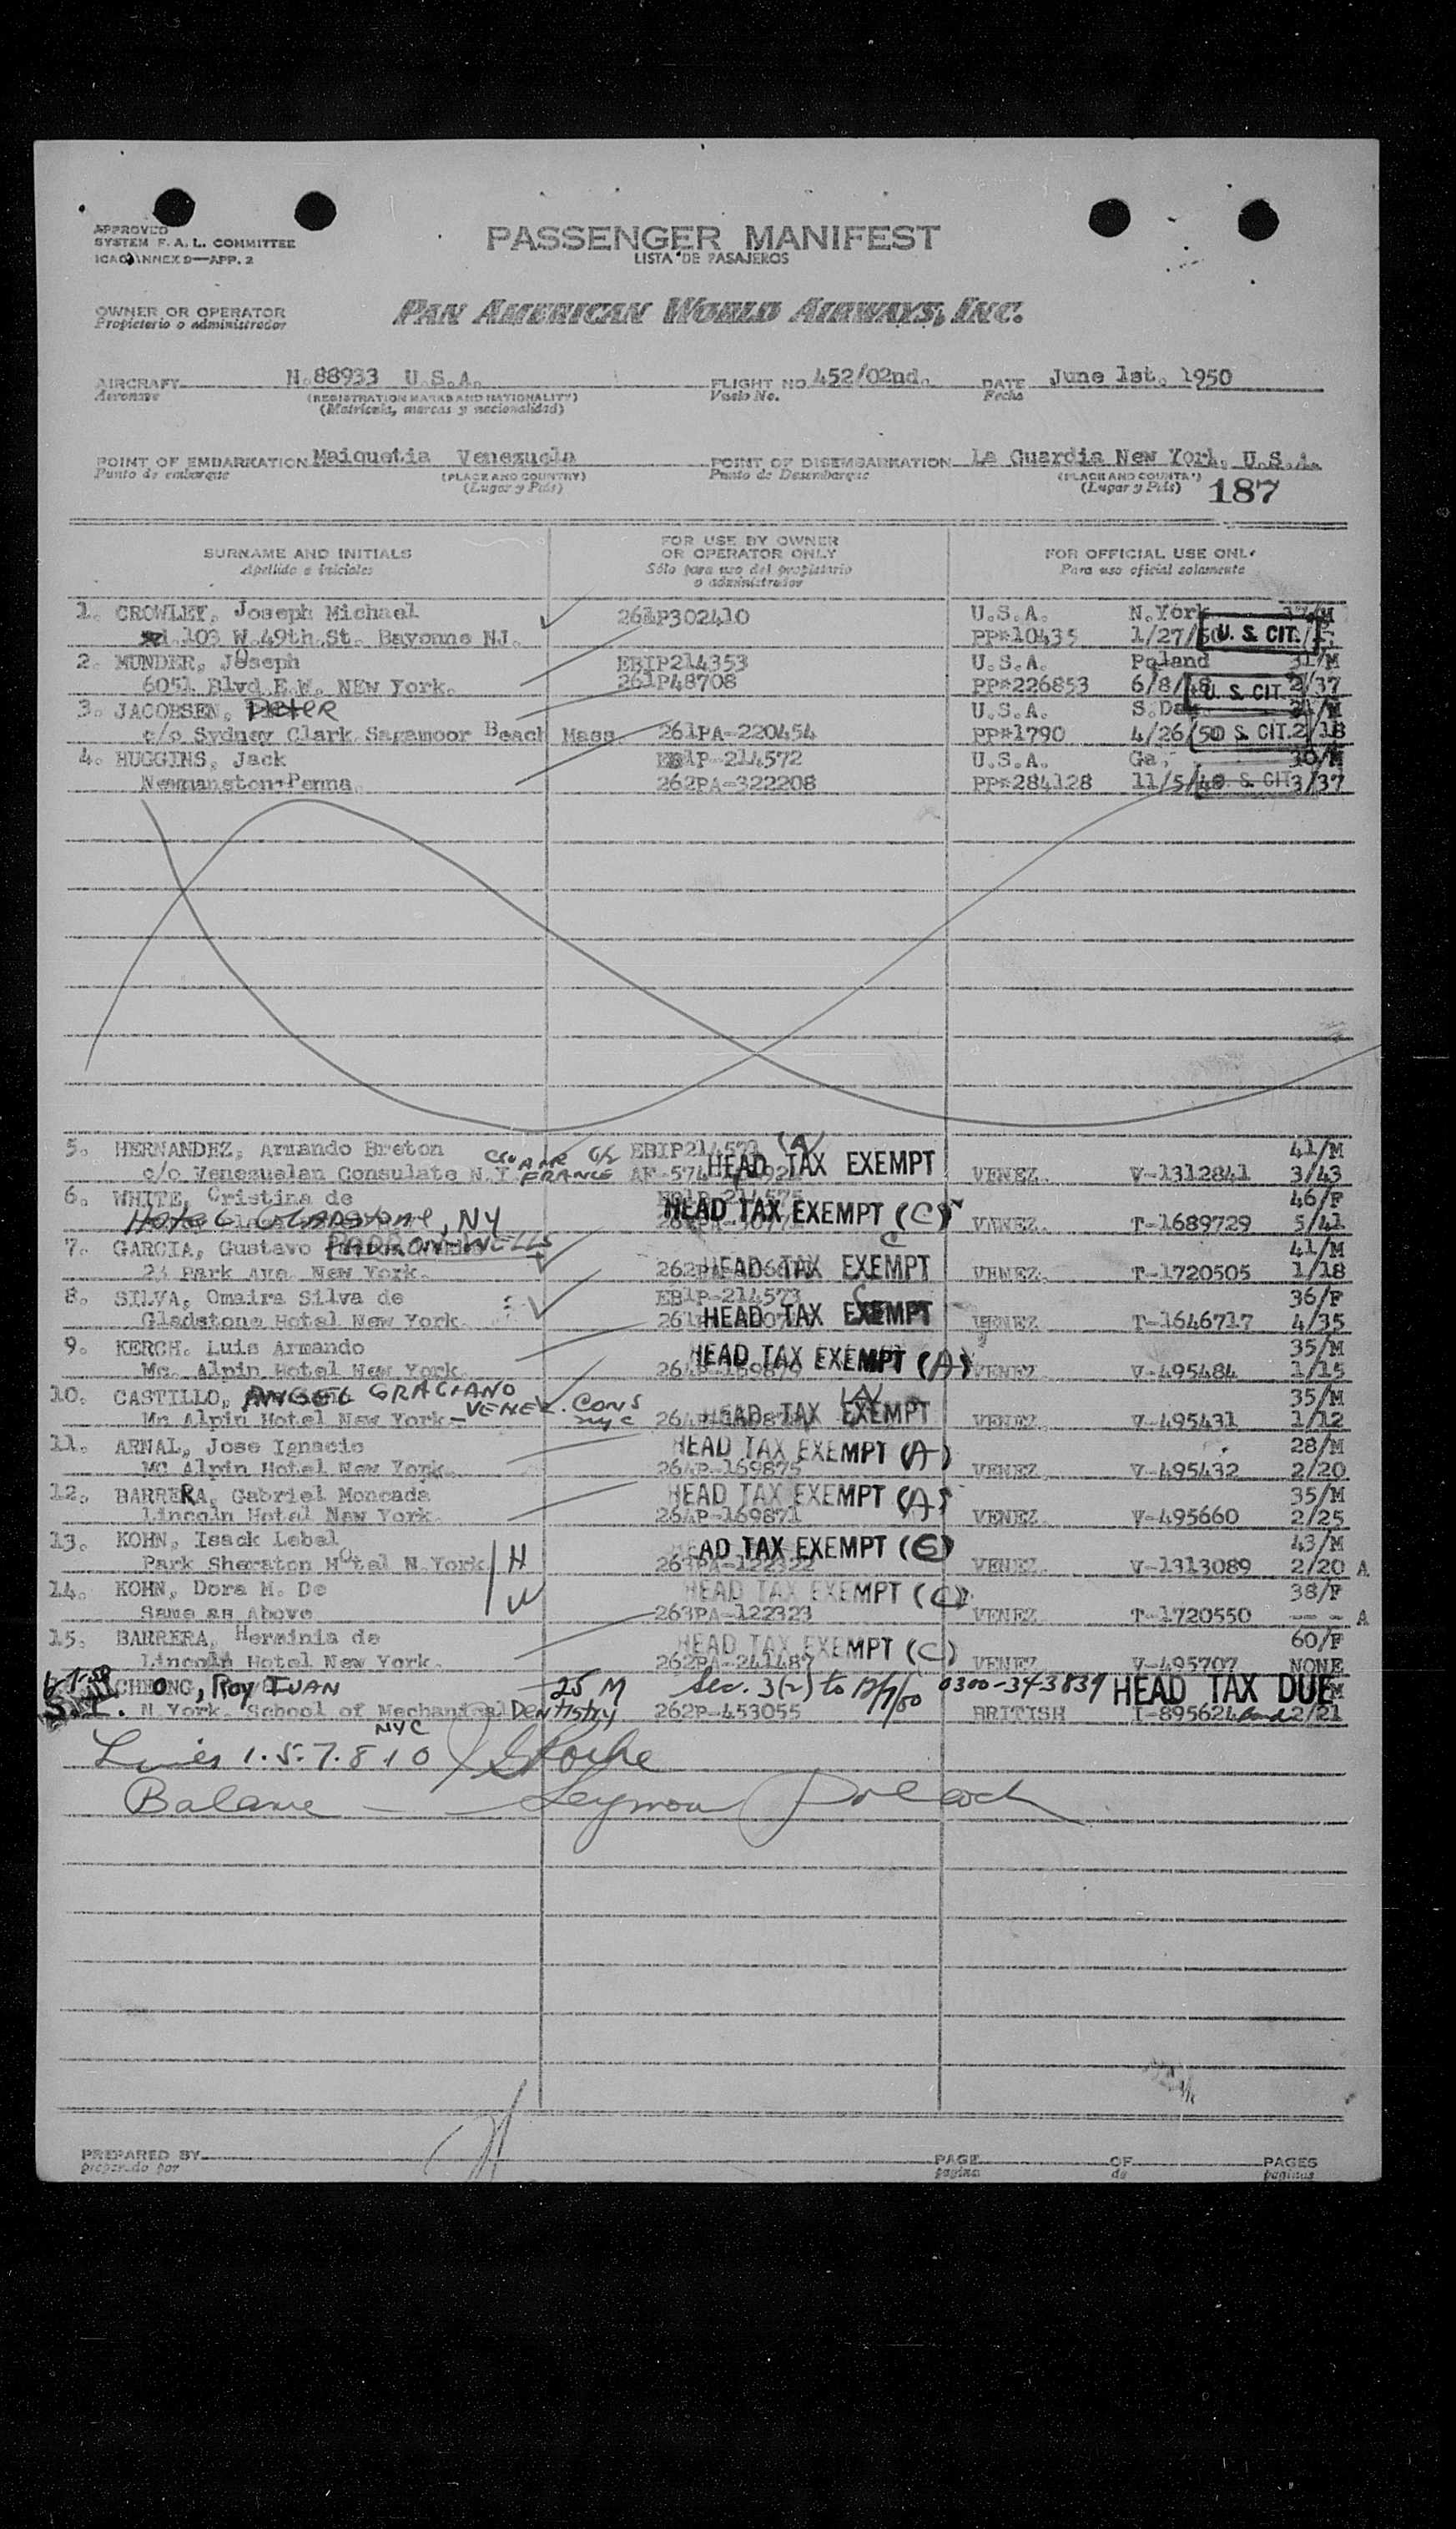 APPROVED
SYSTEM F. A. L. COMMITTEE
ICAO ANNEX 9—APP. 2
PASSENGER MANIFEST
LISTA DE PASAJEROS
OWNER OR OPERATOR
Propietario o administrador
PAN AMERICAN WORLD AIRWAYS, INC.
AIRCRAFT N.88933 U.S.A. FLIGHT NO. 452/02nd. DATE June 1st. 1950
Aeronave (REGISTRATION MARKS AND NATIONALITY) Vuelo No. Fecha
(Matrícula, marcas y nacionalidad)
POINT OF EMBARKATION Maiquetia Venezuela POINT OF DISEMBARKATION La Guardia New York, U.S.A.
Punto de embarque (PLACE AND COUNTRY) Punto de Desembarque (PLACE AND COUNTRY)
(Lugar y País) (Lugar y País) 187
SURNAME AND INITIALS FOR USE BY OWNER OR OPERATOR ONLY FOR OFFICIAL USE ONLY
Apellido e iniciales Sólo para uso del propietario o administrador Para uso oficial solamente
1. CROWLEY, Joseph Michael 261P302410 U.S.A. N.York
103 W.49th.St. Bayonne NJ. PP#10435 1/27/50 U. S. CIT.
2. MUNDER, JOseph EBIP214353 U.S.A. Poland 31/M
6051 Blvd E.W. NEw York. 261P48708 PP#226853 6/8/48 U. S. CIT. 2/37
3. JACOBSEN, Pieter U.S.A. S.Dak
c/o Sydney Clark Sagamoor Beach Mass. 261PA-220454 PP#1790 4/26/50 U. S. CIT. 2/18
4. HUGGINS, Jack EB1P-214572 U.S.A. Ga. 30/M
Newmanston-Penna 262PA-322208 PP#284128 11/5/48 U. S. CIT 3/37
5. HERNANDEZ, Armando Breton EBIP214571 (A) 41/M
c/o Venezuelan Consulate N.Y. FRANCE HEAD TAX EXEMPT VENEZ. V-1312841 3/43
6. WHITE, Cristina de 46/F
HOTEL GLADSTONE, NY HEAD TAX EXEMPT (C) VENEZ. T-1689729 5/41
7. GARCIA, Gustavo PADRON-WELLS C 41/M
24 Park Ave. New York. HEAD TAX EXEMPT VENEZ. T-1720505 1/18
8. SILVA, Omaira Silva de EB1P-214573 36/F
Gladstone Hotel New York. HEAD TAX EXEMPT VENEZ T-1646717 4/35
9. KERCH. Luis Armando HEAD TAX EXEMPT (A) 35/M
Mc. Alpin Hotel New York. 264P-169879 VENEZ. V-495484 1/15
10. CASTILLO, ANGEL GRACIANO (A) 35/M
Mc Alpin Hotel New York.- VENEZ. CONS NYC HEAD TAX EXEMPT VENEZ. V-495431 1/12
11. ARNAL, Jose Ignacio HEAD TAX EXEMPT (A) 28/M
MC Alpin Hotel New York. 264P-169875 VENEZ. V-495432 2/20
12. BARRERA, Gabriel Moncada HEAD TAX EXEMPT (A) 35/M
Lincoln Hotel New York. 264P-169871 VENEZ. V-495660 2/25
13. KOHN, Isack Lebel HEAD TAX EXEMPT (C) 43/M
Park Sheraton HOtel N.York H 263PA-122322 VENEZ. V-1313089 2/20 A
14. KOHN, Dora M. De W HEAD TAX EXEMPT (C) 38/F
Same as Above 263PA-122323 VENEZ. T-1720550 --- - A
15. BARRERA, Herminia de HEAD TAX EXEMPT (C) 60/F
Lincoln Hotel New York. 262PA-241487 VENEZ. V-495707 NONE
CHEONG, Roy IVAN 25 M Sec. 3(2) to 12/1/50 0300-343839 HEAD TAX DUE
S.I. N.York. School of Mechanical Dentistry NYC 262P-453055 BRITISH I-895624 bond 2/21
Lines 1.5.7.8.10
Balance - Seymour Pollack
PREPARED BY PAGE OF PAGES
preparado por página de páginas